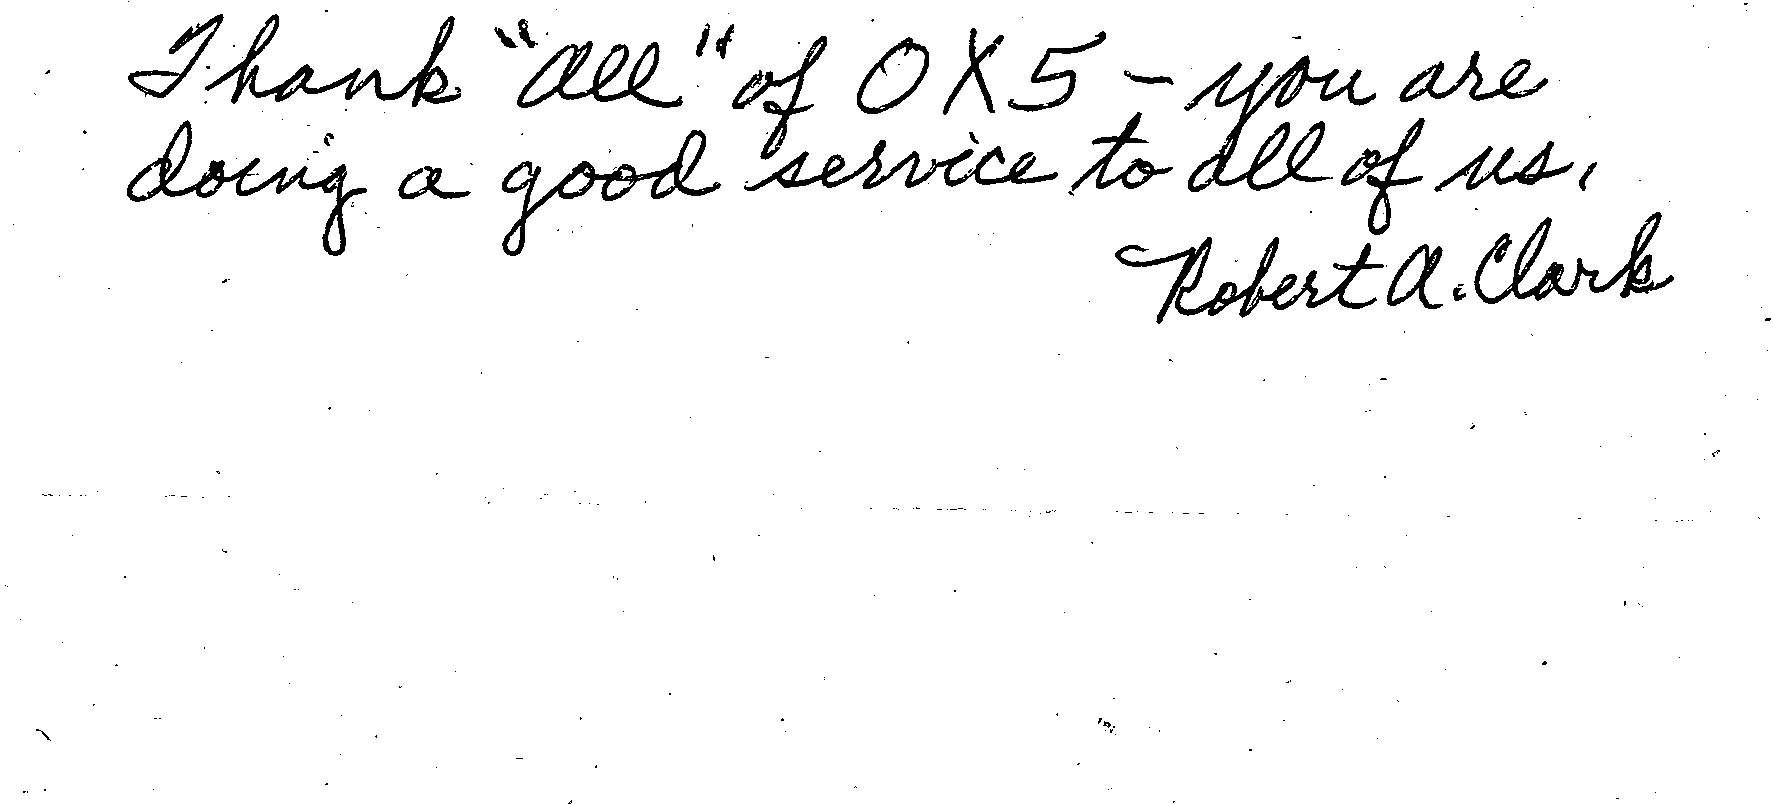 Thank "all" of OX5 - you are
doing a good service to all of us.
Robert A. Clark